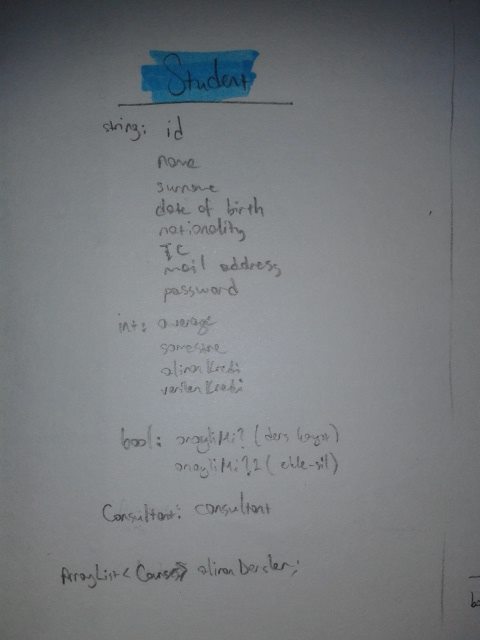 Student
string: id
name
surname
date of birth
nationality
TC
mail address
password
int: average
alinanKredi
verilenKredi
bool: onayliMi? (ders kayıt)
onayliMi?2 (ekle-sil)
Consultant: consultant
ArrayList<Courses> alinanDersler;